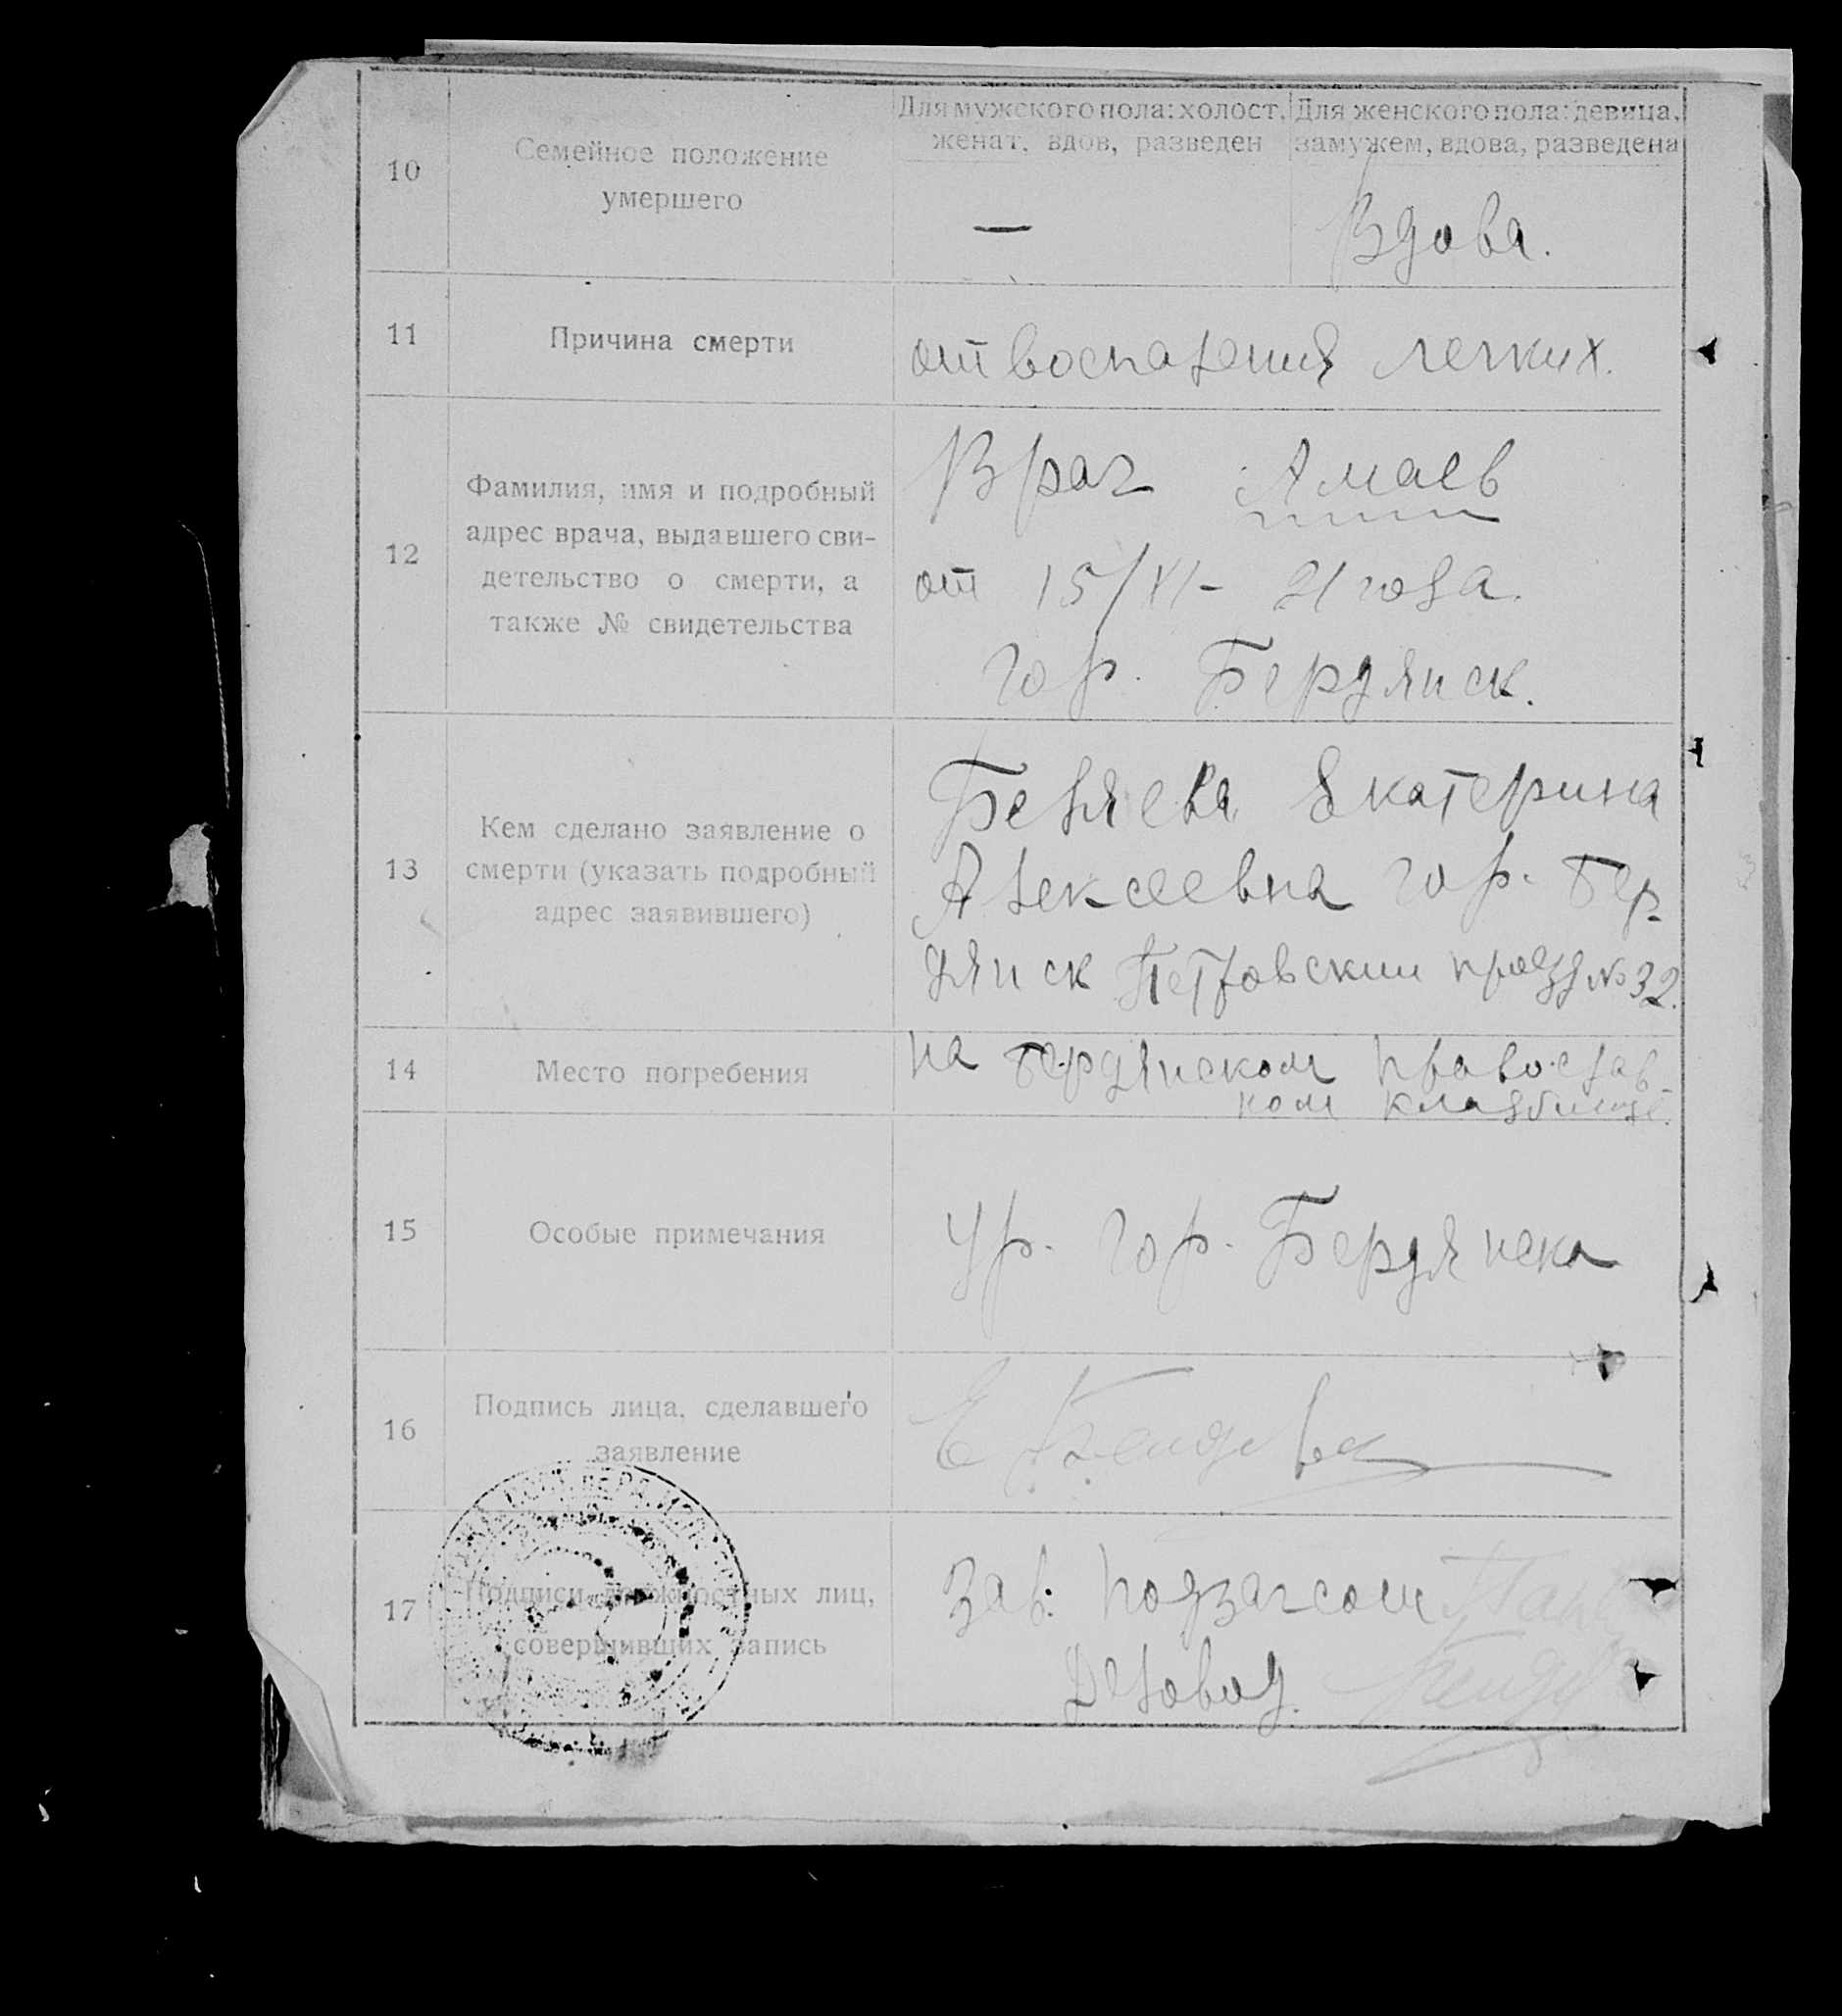 Для мужского пола: холост, женат, вдов, разведен
Для женского пола: девица, замужем, вдова, разведена
10
Семейное положение
умершего
—
Вдова.
11
Причина смерти
от воспаления легких.
12
Фамилия, имя и подробный
адрес врача, выдавшего сви-
детельство о смерти, а
также № свидетельства
Врач Амаев
от 15/XI- 21 года.
гор. Бердянск.
13
Кем сделано заявление о
смерти (указать подробный
адрес заявившего)
Беляева Екатерина
Алексеевна гор. Бер-
дянск Петровский проезд № 32.
14
Место погребения
на бердянском православ-
ном кладбище.
15
Особые примечания
Ур. гор. Бердянска
16
Подпись лица, сделавшего
заявление
Е
17
Подписи должностных лиц,
совершивших запись
Зав. подзагсом
Деловод.